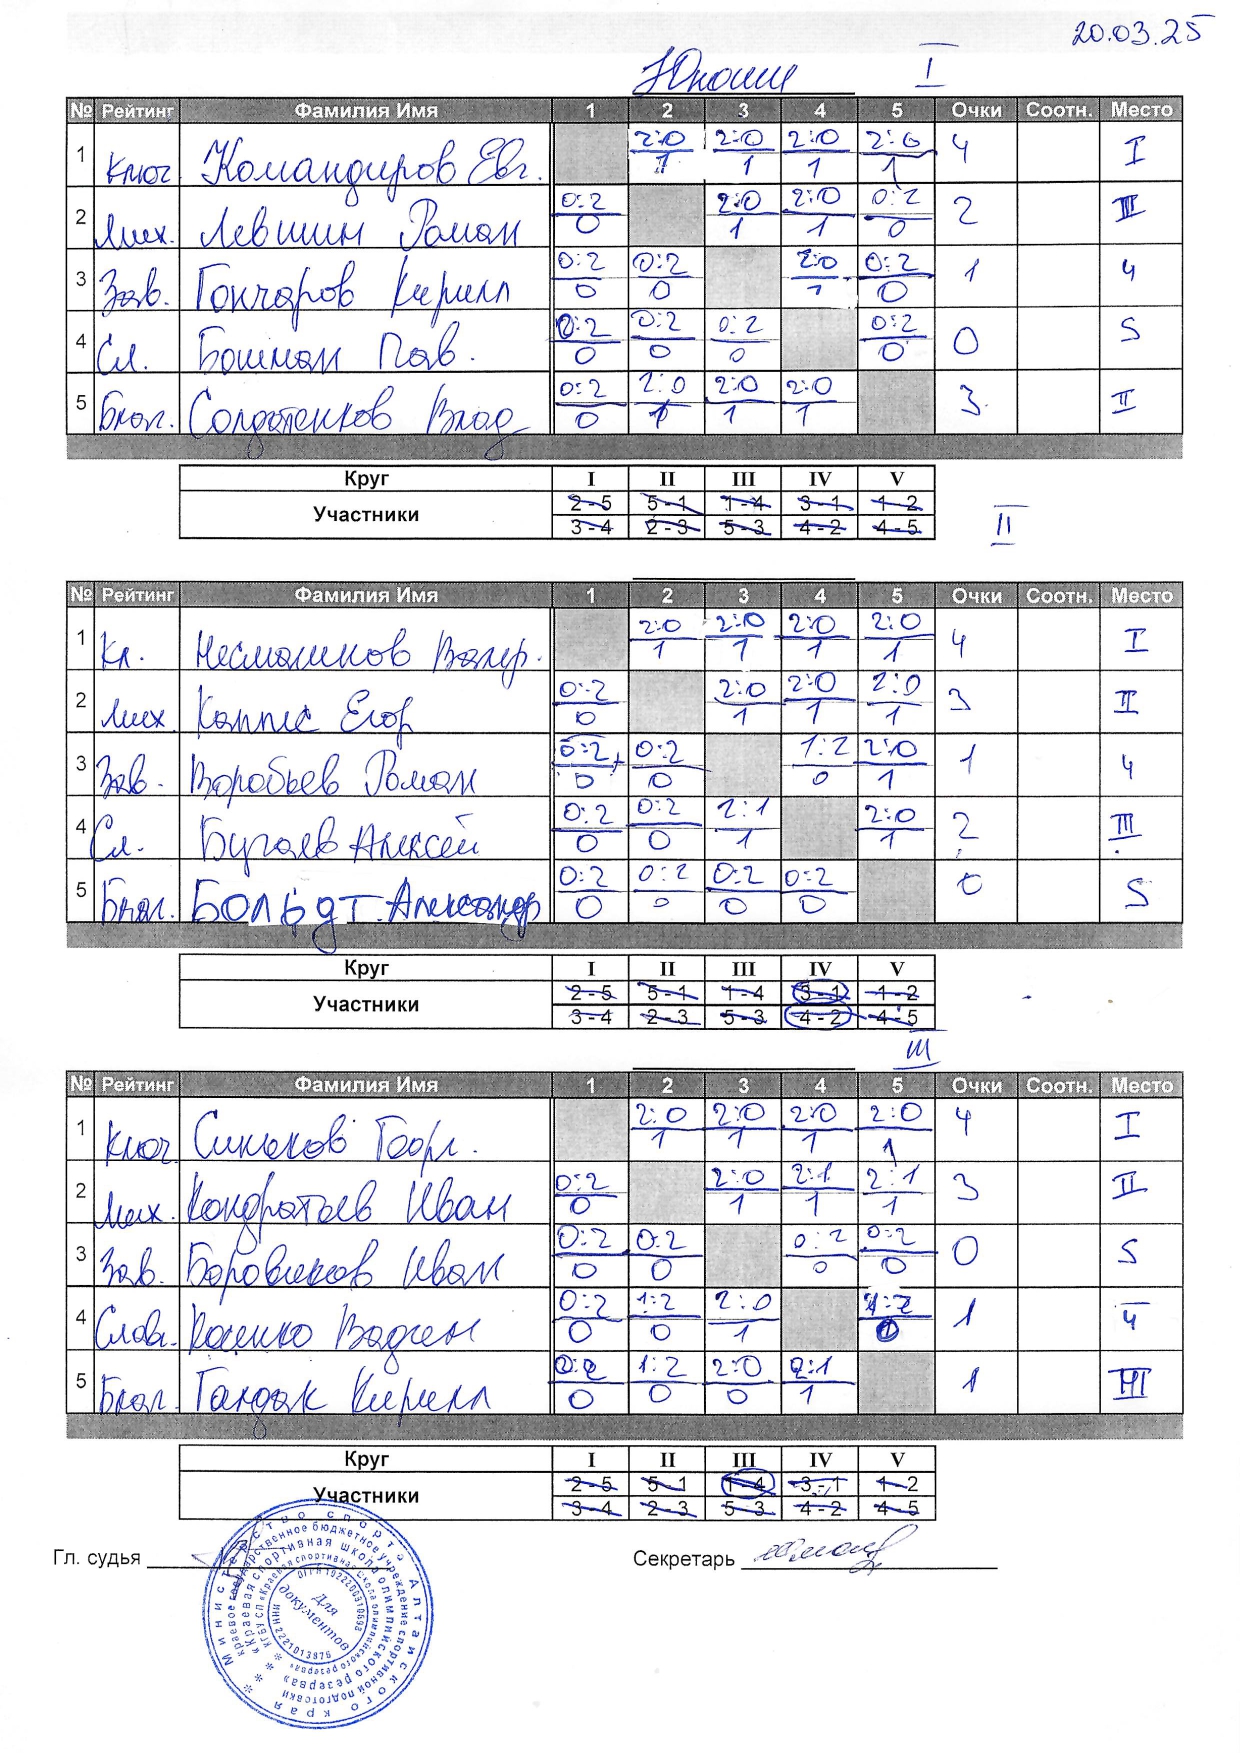 20.03.25
Юноши I
№ Рейтинг Фамилия Имя 1 2 3 4 5 Очки Соотн. Место
1 Ключ. Командиров Евг. 2:0 1 2:0 1 2:0 1 2:0 1 4 I
2 Мих. Левшин Роман 0:2 0 2:0 1 2:0 1 0:2 0 2 III
3 Зав. Гончаров Кирилл 0:2 0 0:2 0 2:0 1 0:2 0 1 4
4 Сл. Бошман Пав. 0:2 0 0:2 0 0:2 0 0:2 0 0 5
5 Благ. Солдатенков Влад 0:2 0 2:0 1 2:0 1 2:0 1 3 II
Круг I II III IV V
Участники 2 - 5 5 - 1 1 - 4 3 - 1 1 - 2
3 - 4 2 - 3 5 - 3 4 - 2 4 - 5
II
№ Рейтинг Фамилия Имя 1 2 3 4 5 Очки Соотн. Место
1 Кл. Несмашнов Валер. 2:0 1 2:0 1 2:0 1 2:0 1 4 I
2 Мих. Каппес Егор 0:2 0 2:0 1 2:0 1 2:0 1 3 II
3 Зав. Воробьев Роман 0:2 0 0:2 0 1:2 0 2:0 1 1 4
4 Сл. Бугаев Алексей 0:2 0 0:2 0 2:1 1 2:0 1 2 III
5 Благ. Больдт Александр 0:2 0 0:2 0 0:2 0 0:2 0 0 5
Круг I II III IV V
Участники 2 - 5 5 - 1 1 - 4 3 - 1 1 - 2
3 - 4 2 - 3 5 - 3 4 - 2 4 - 5
III
№ Рейтинг Фамилия Имя 1 2 3 4 5 Очки Соотн. Место
1 Ключ. Георг. 2:0 1 2:0 1 2:0 1 2:0 1 4 I
2 Мих. Кондратьев Иван 0:2 0 2:0 1 2:1 1 2:1 1 3 II
3 Зав. Боровиков Иван 0:2 0 0:2 0 0:2 0 0:2 0 0 5
4 Слав. Косенко Вадим 0:2 0 1:2 0 2:0 1 1:2 0 1 4
5 Благ. Гандак Кирилл 0:2 0 1:2 0 2:0 0 2:1 1 1 III
Круг I II III IV V
Участники 2 - 5 5 - 1 1 - 4 3 - 1 1 - 2
3 - 4 2 - 3 5 - 3 4 - 2 4 - 5
Гл. судья Секретарь
Министерство спорта Алтайского края
краевое государственное бюджетное учреждение спортивной подготовки
«Краевая спортивная школа олимпийского резерва»
Для
документов